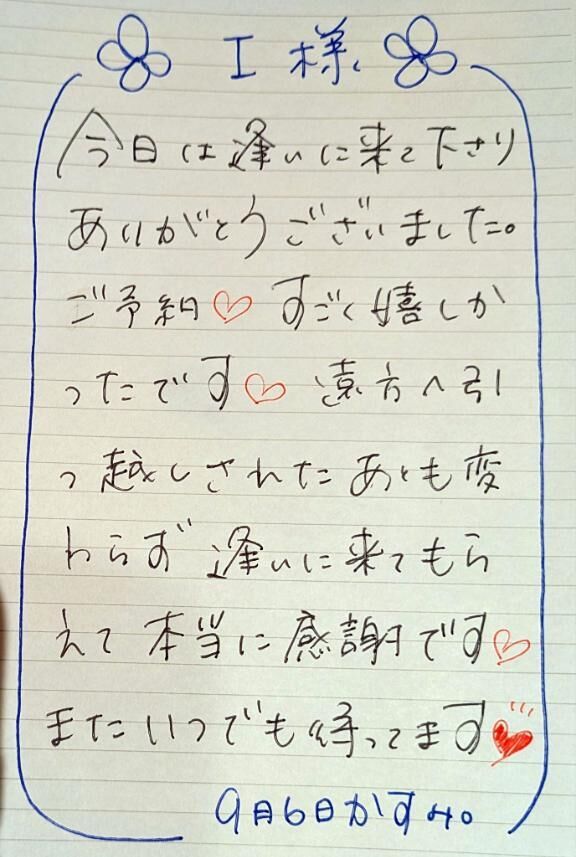 I様
今日は逢いに来て下さり
ありがとうございました。
ご予約♡ すごく嬉しか
ったです♡ 遠方へ引
っ越しされたあとも変
わらず逢いに来てもら
えて本当に感謝です♡
またいつでも待ってます♥
9月6日かすみ。